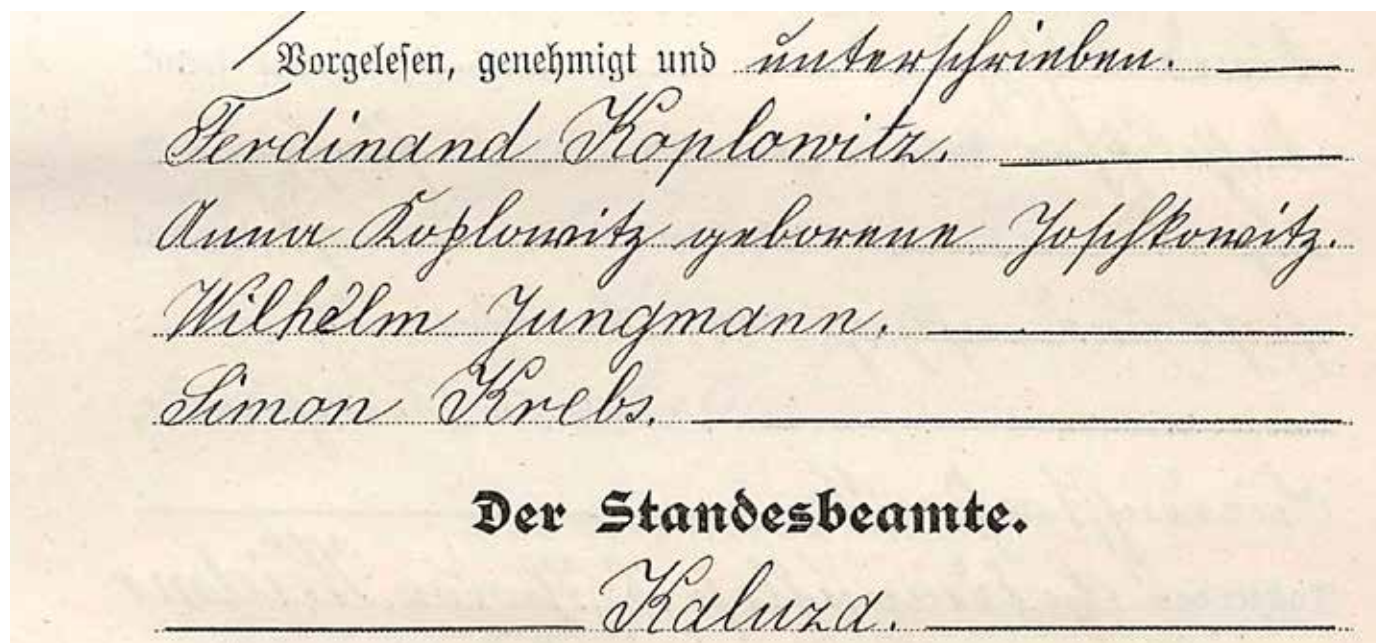 Vorgelesen, genehmigt und unterschrieben.
Ferdinand Koplowitz.
Anna Koplowitz geborene Joschkowitz.
Wilhelm Jungmann.
Simon Krebs.
Der Standesbeamte.
Kaluza.